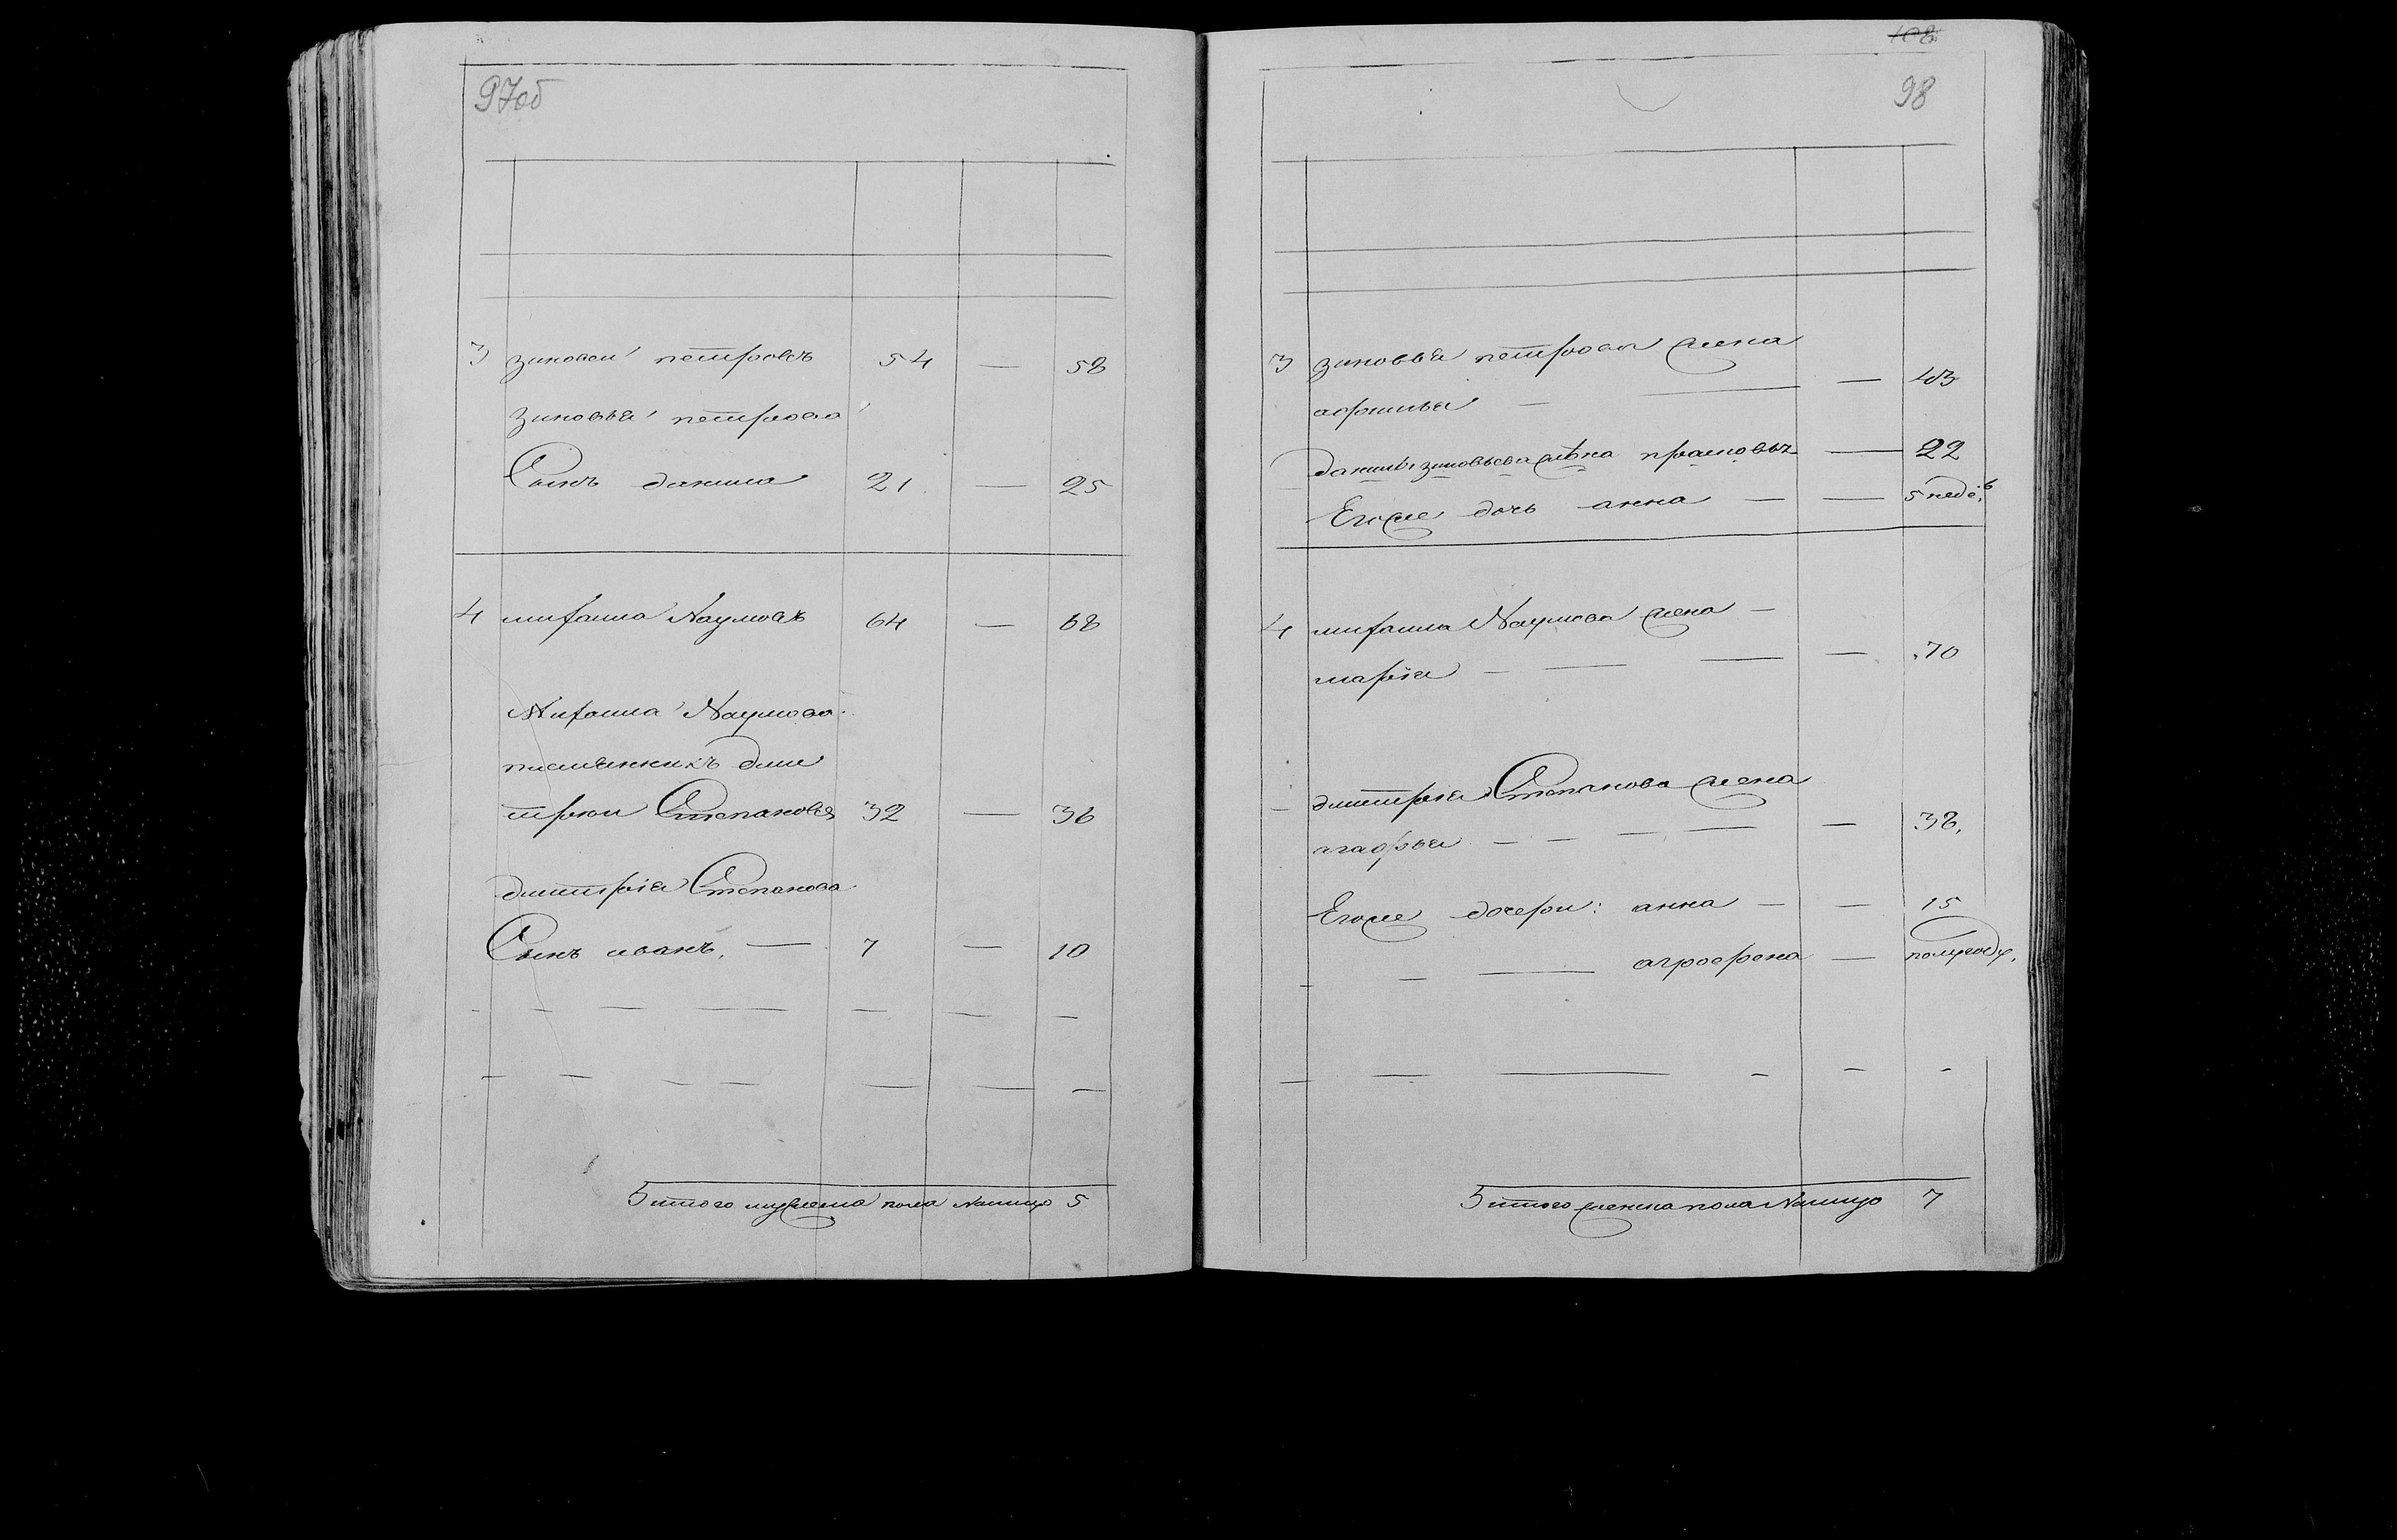 97об
3 зиновеи петровъ 54 — 58
зиновья петрова
Сынъ данила 21 — 25
4 михаила Наумовъ 64 — 68
Михаила Наумова
племянникъ дми
трїи Степановъ 32 — 36
димитрїя Степанова
Сынъ иванъ. — 7 — 10
итого мужеска пола Налицо 5
108
98
3 зиновья петрова жена
— 43
данилы зиновьева жена — 22
Егоже дочь анна — — 5 неде
4 михаила Наумова жена —
марїя — — — — 70
димитрїя Степанова жена
агафья — — — — — 38.
Егоже дочери: анна — — 15
— — агрофена — полугоду.
итого женска пола Налицо 7